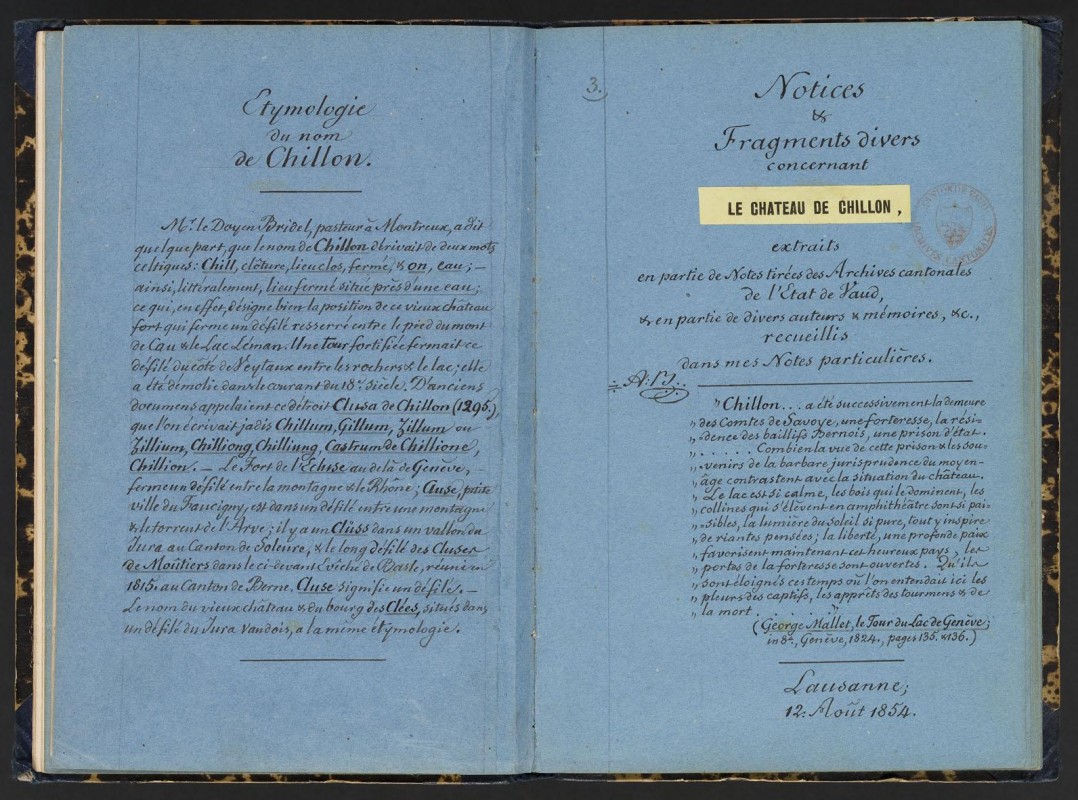 Etymologie
du nom
de Chillon.
Mr. le Doyen Bridel, pasteur à Montreux, a dit
quelque part, que le nom de Chillon dérivait de deux mots
celtiques: Chill, clôture, lieu clos, fermé, & on, eau; —
ainsi, littéralement, lieu fermé situé près d'une eau;
ce qui, en effet, désigne bien la position de ce vieux château
fort qui ferme un défilé resserré entre le pied du mont
de Cau & le Lac Léman. Une tour fortifiée fermait ce
défilé du côté de Veytaux entre les rochers & le lac; elle
a été démolie dans le courant du 18e. Siècle. D'anciens
documens appelaient ce détroit Clusa de Chillon (1295.)
que l'on écrivait jadis Chillum, Gillum, Zillum ou
Zillium, Chilliong, Chilliung, Castrum de Chillione,
Chillion. — Le Fort de l'Ecluse au delà de Genève, —
ferme un défilé entre la montagne & le Rhône; Cluse, petite
ville du Faucigny, est dans un défilé entre une montagne
& le torrent de l'Arve; il y a un Clüss dans un vallon du
Jura au Canton de Soleure, & le long défilé des Cluses
de Moûtiers dans le ci-devant Evêché de Basle, réuni en
1815. au Canton de Berne. Cluse signifie un défilé. —
Le nom du vieux château & du bourg des Clées, situés dans
un défilé du Jura Vaudois, a la même étymologie.
3.
Notices
&
Fragments divers
concernant
LE CHATEAU DE CHILLON,
extraits
en partie de Notes tirées des Archives cantonales
de l'Etat de Vaud,
& en partie de divers auteurs & mémoires, &c.,
recueillis
dans mes Notes particulières.
"Chillon... a été successivement la demeure
„ des Comtes de Savoye, une forteresse, la rési-
„ dence des baillifs Bernois, une prison d'état.
„ . . . . . Combien la vue de cette prison & les sou-
„ venirs de la barbare jurisprudence du moyen-
„ âge contrastent avec la situation du château.
„ Le lac est si calme, les bois qui le dominent, les
„ collines qui s'élèvent en amphithéâtre sont si pai-
„ sibles, la lumière du Soleil si pure, tout y inspire
„ de riantes pensées; la liberté, une profonde paix
„ favorisent maintenant cet heureux pays, les
„ portes de la forteresse sont ouvertes. Qu'ils
„ sont éloignés ces temps où l'on entendait ici les
„ pleurs des captifs, les apprêts des tourmens & de
„ la mort.
(George Mallet, le Tour du Lac de Genève;
in 8°., Genève, 1824., pages 135. & 136.)
Lausanne;
12. Août 1854.